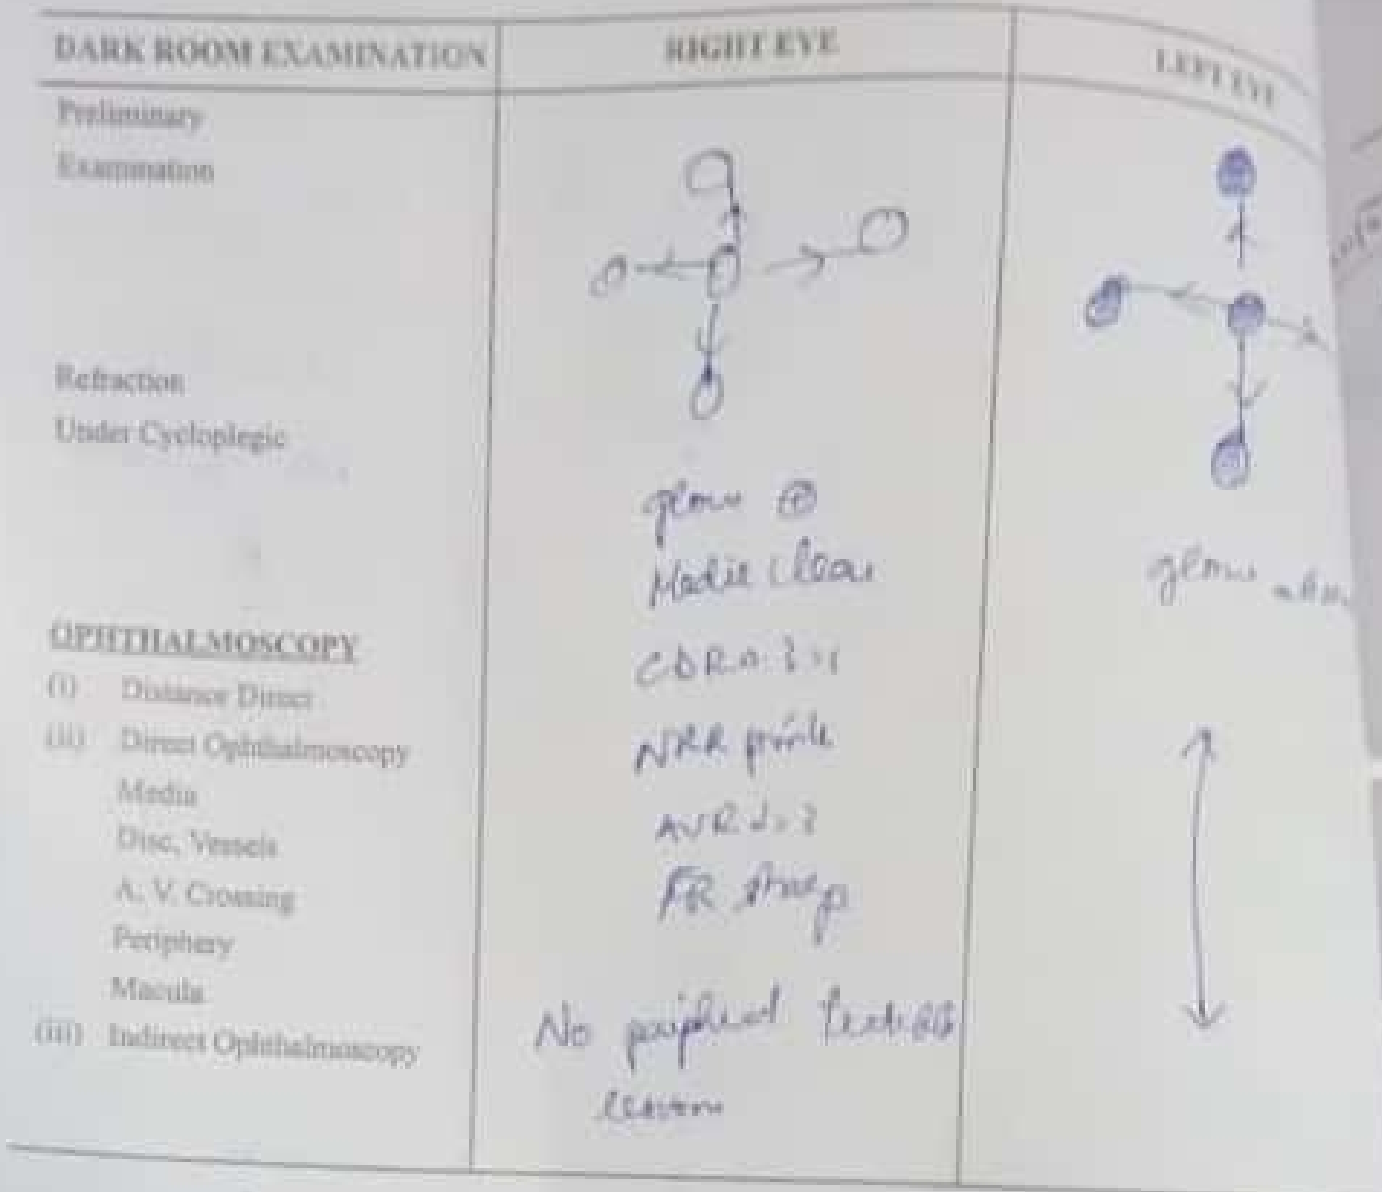 DARK ROOM EXAMINATION
RIGHT EYE
LEFT EYE
Preliminary
Examination
Refraction
Under Cycloplegic
glow ⊕
Media clear
glow
OPHTHALMOSCOPY
(i) Distance Direct
(ii) Direct Ophthalmoscopy
Media
Disc, Vessels
A. V. Crossing
Periphery
Macula
(iii) Indirect Ophthalmoscopy
CDR 0.3:1
NRR pink
AVR 2:3
FR sharp
No peripheral
lesion